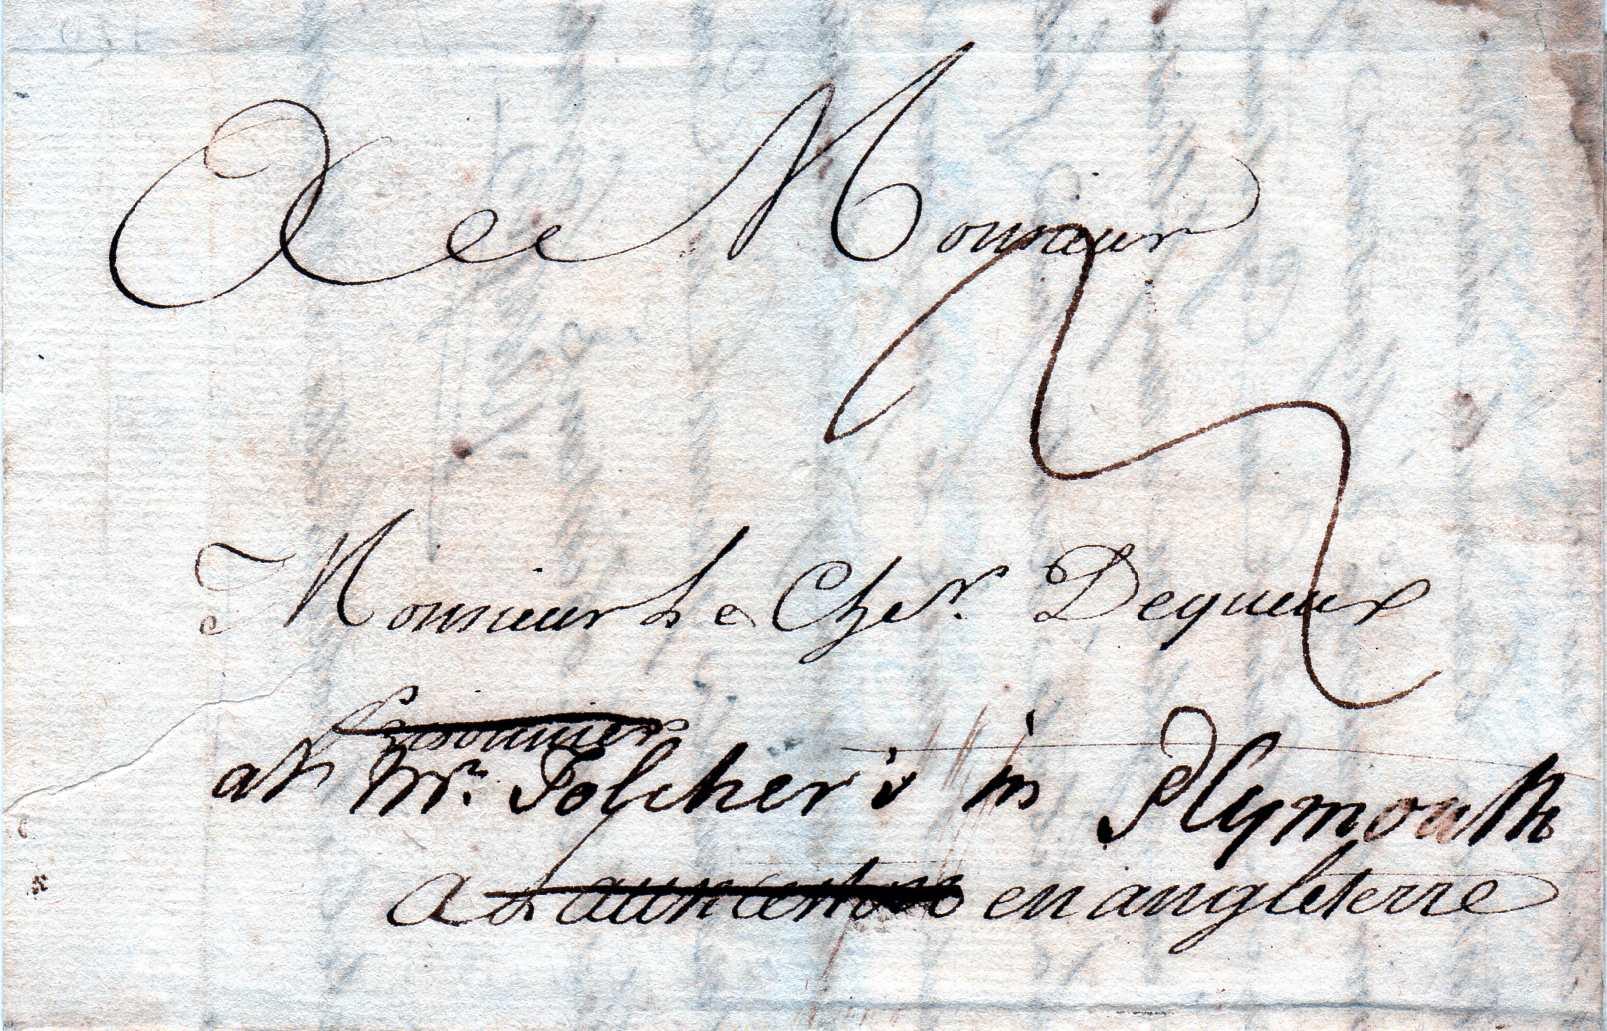 A Monsieur
Monsieur Le Cher. Dequeux
prisonnier
at Mr. Tolcher's in Plymouth
a Launceston en angleterre